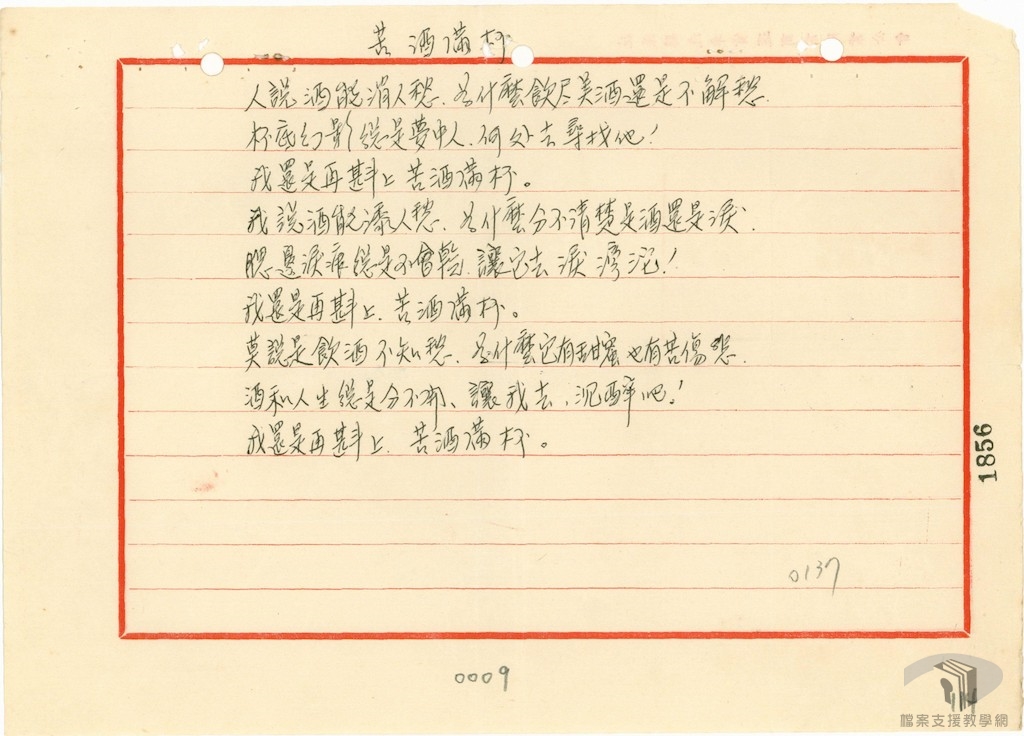 苦酒滿杯
人說酒能消人愁、為什麼飲尽美酒還是不解愁.
杯底幻影總是夢中人、何处去尋找他！
我還是再斟上 苦酒滿杯。
我說酒能添人愁、為什麼分不清楚是酒還是淚.
腮邊淚痕總是不會乾、讓它去 淚 灣沱！
我還是再斟上、苦酒滿杯。
莫說是飲酒不知愁、為什麼它有甜蜜也有苦傷悲.
酒和人生總是分不開、讓我去、沉醉吧！
我還是再斟上、苦酒滿杯。
1856
0137
0009
檔案支援教學網